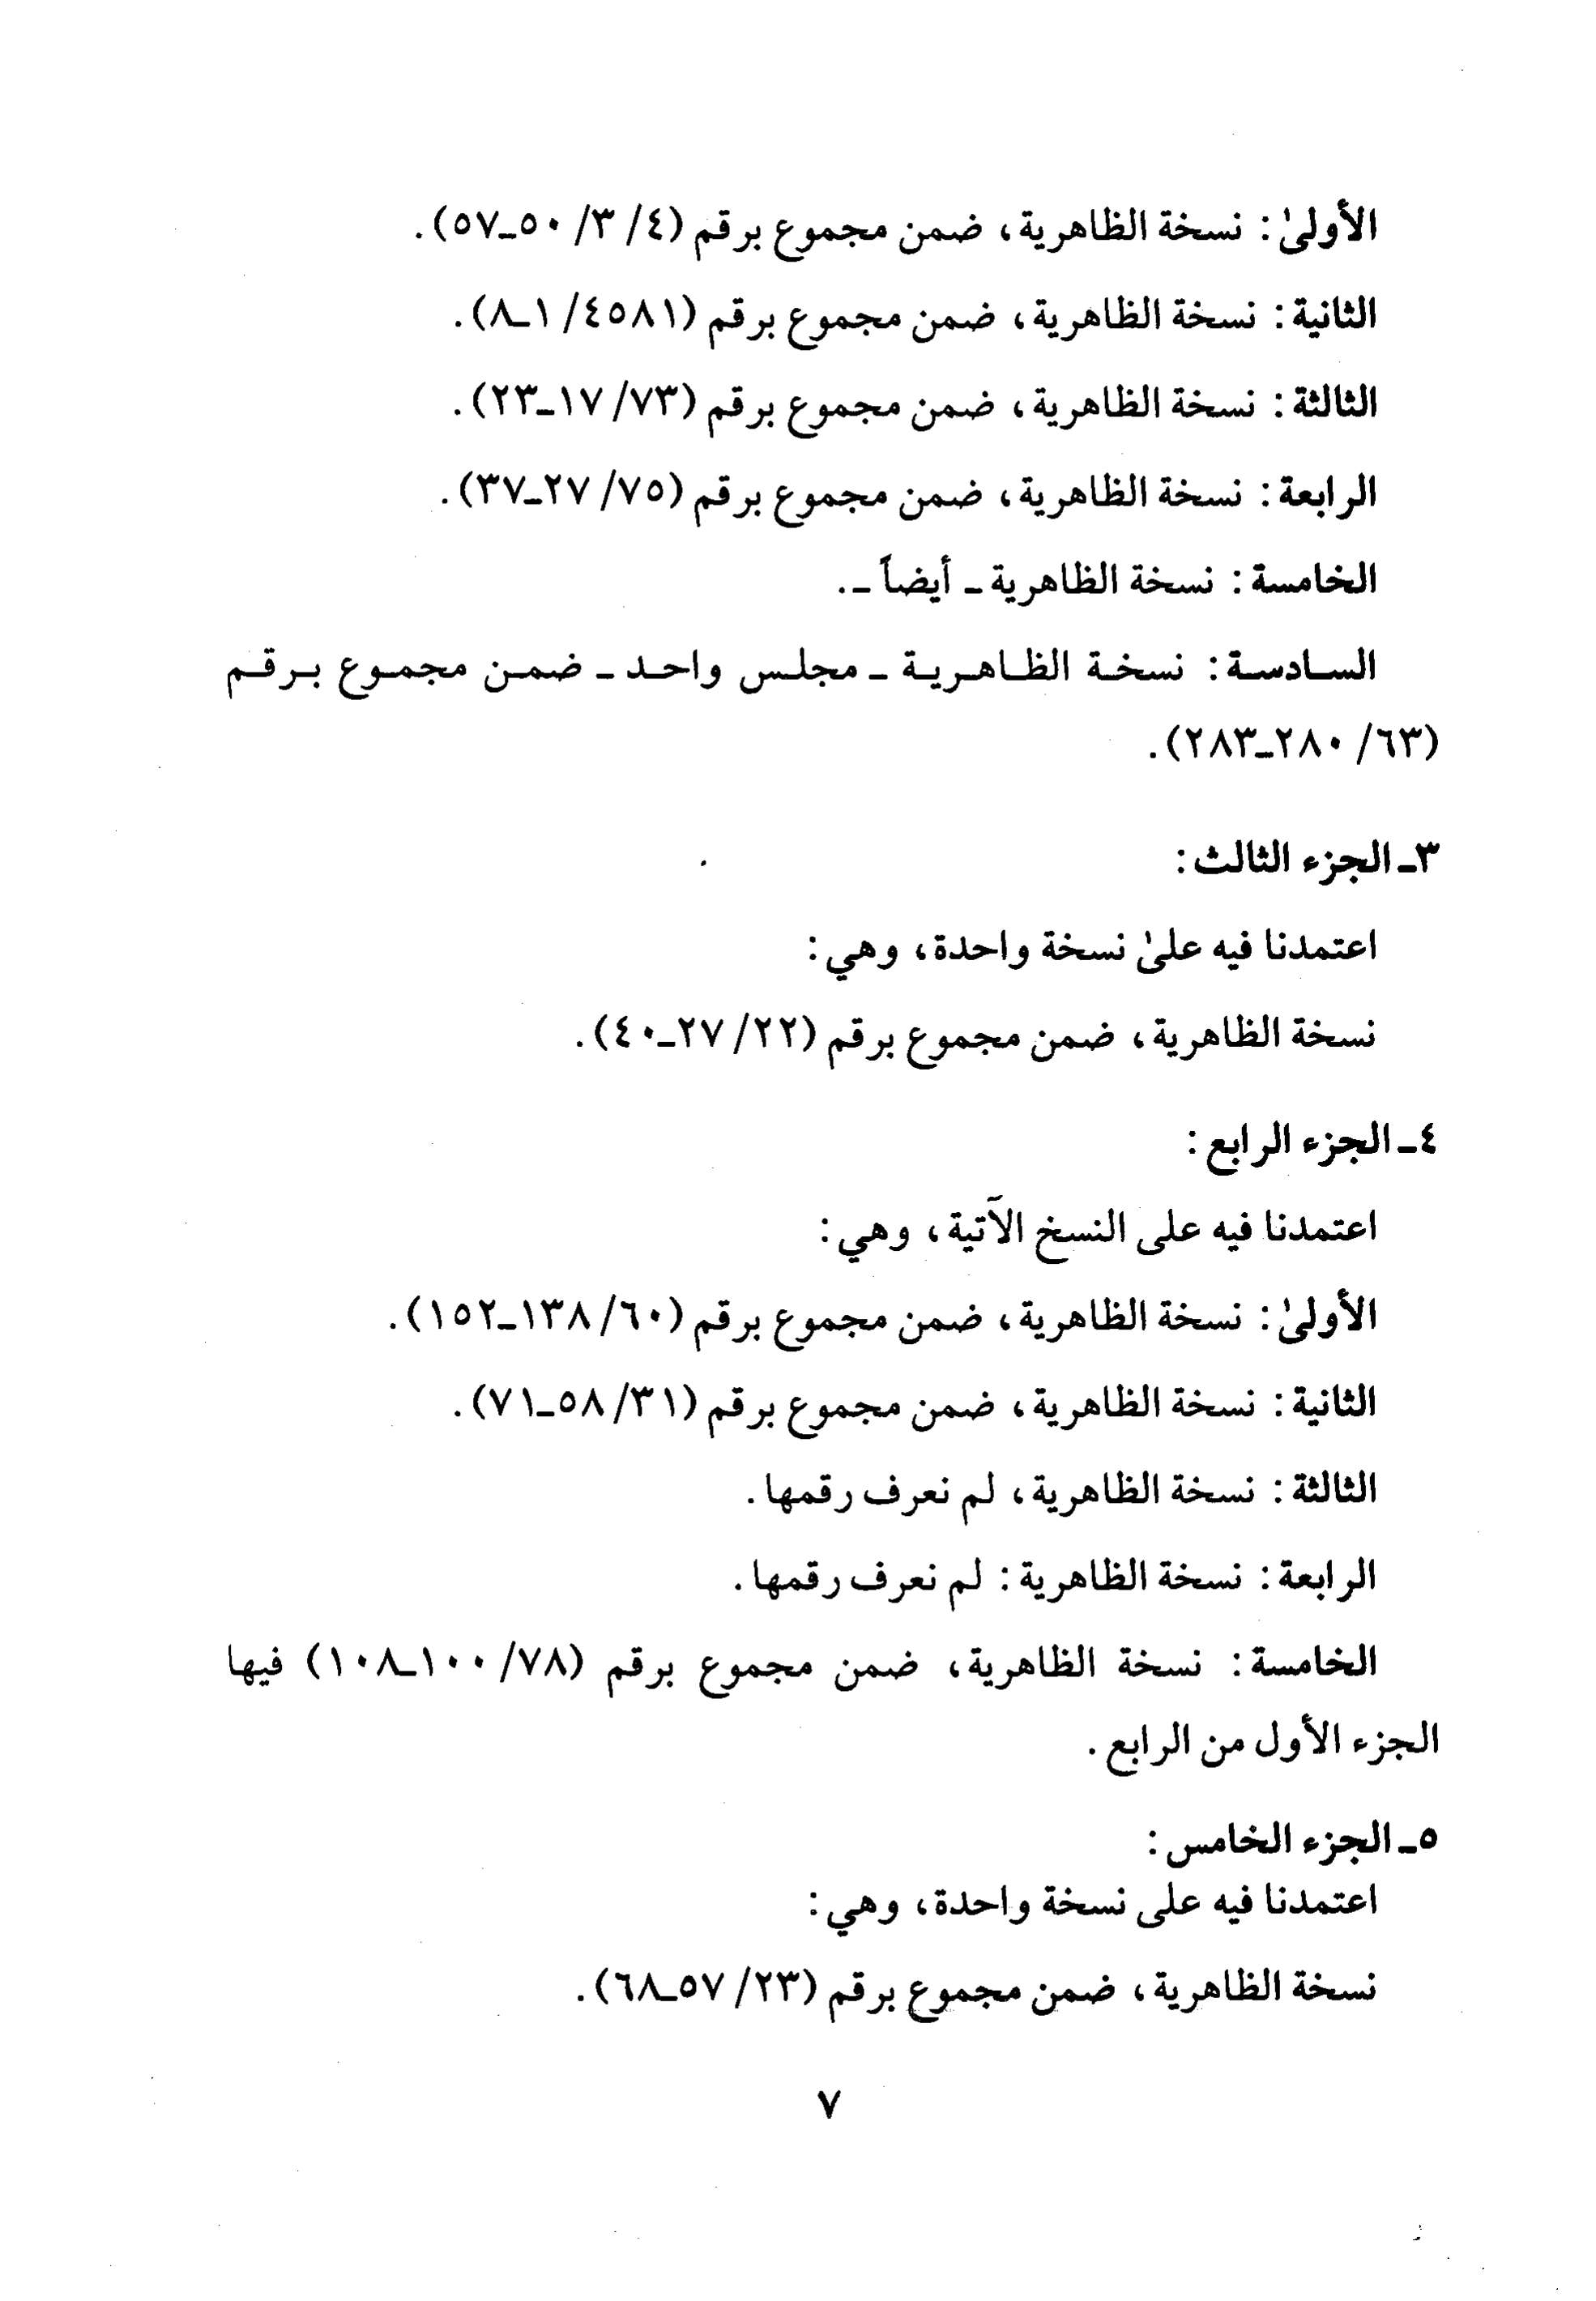 الأولىٰ: نسخة الظاهرية، ضمن مجموع برقم (٤/ ٣/ ٥٠ـ٥٧).
الثانية: نسخة الظاهرية، ضمن مجموع برقم (٤٥٨١/ ١ـ٨).
الثالثة: نسخة الظاهرية، ضمن مجموع برقم (٧٣/ ١٧ـ٢٣).
الرابعة: نسخة الظاهرية، ضمن مجموع برقم (٧٥/ ٢٧ـ٣٧).
الخامسة: نسخة الظاهرية ـ أيضاً ـ.
السادسة: نسخة الظاهرية ـ مجلس واحد ـ ضمن مجموع برقم
(٦٣/ ٢٨٠ـ٢٨٣).
٣ـ الجزء الثالث:
اعتمدنا فيه علىٰ نسخة واحدة، وهي:
نسخة الظاهرية، ضمن مجموع برقم (٢٢/ ٢٧ـ٤٠).
٤ـ الجزء الرابع:
اعتمدنا فيه على النسخ الآتية، وهي:
الأولىٰ: نسخة الظاهرية، ضمن مجموع برقم (٦٠/ ١٣٨ـ١٥٢).
الثانية: نسخة الظاهرية، ضمن مجموع برقم (٣١/ ٥٨ـ٧١).
الثالثة: نسخة الظاهرية، لم نعرف رقمها.
الرابعة: نسخة الظاهرية: لم نعرف رقمها.
الخامسة: نسخة الظاهرية، ضمن مجموع برقم (٧٨/ ١٠٠ـ١٠٨) فيها
الجزء الأول من الرابع.
٥ـ الجزء الخامس:
اعتمدنا فيه على نسخة واحدة، وهي:
نسخة الظاهرية، ضمن مجموع برقم (٢٣/ ٥٧ـ٦٨).
٧